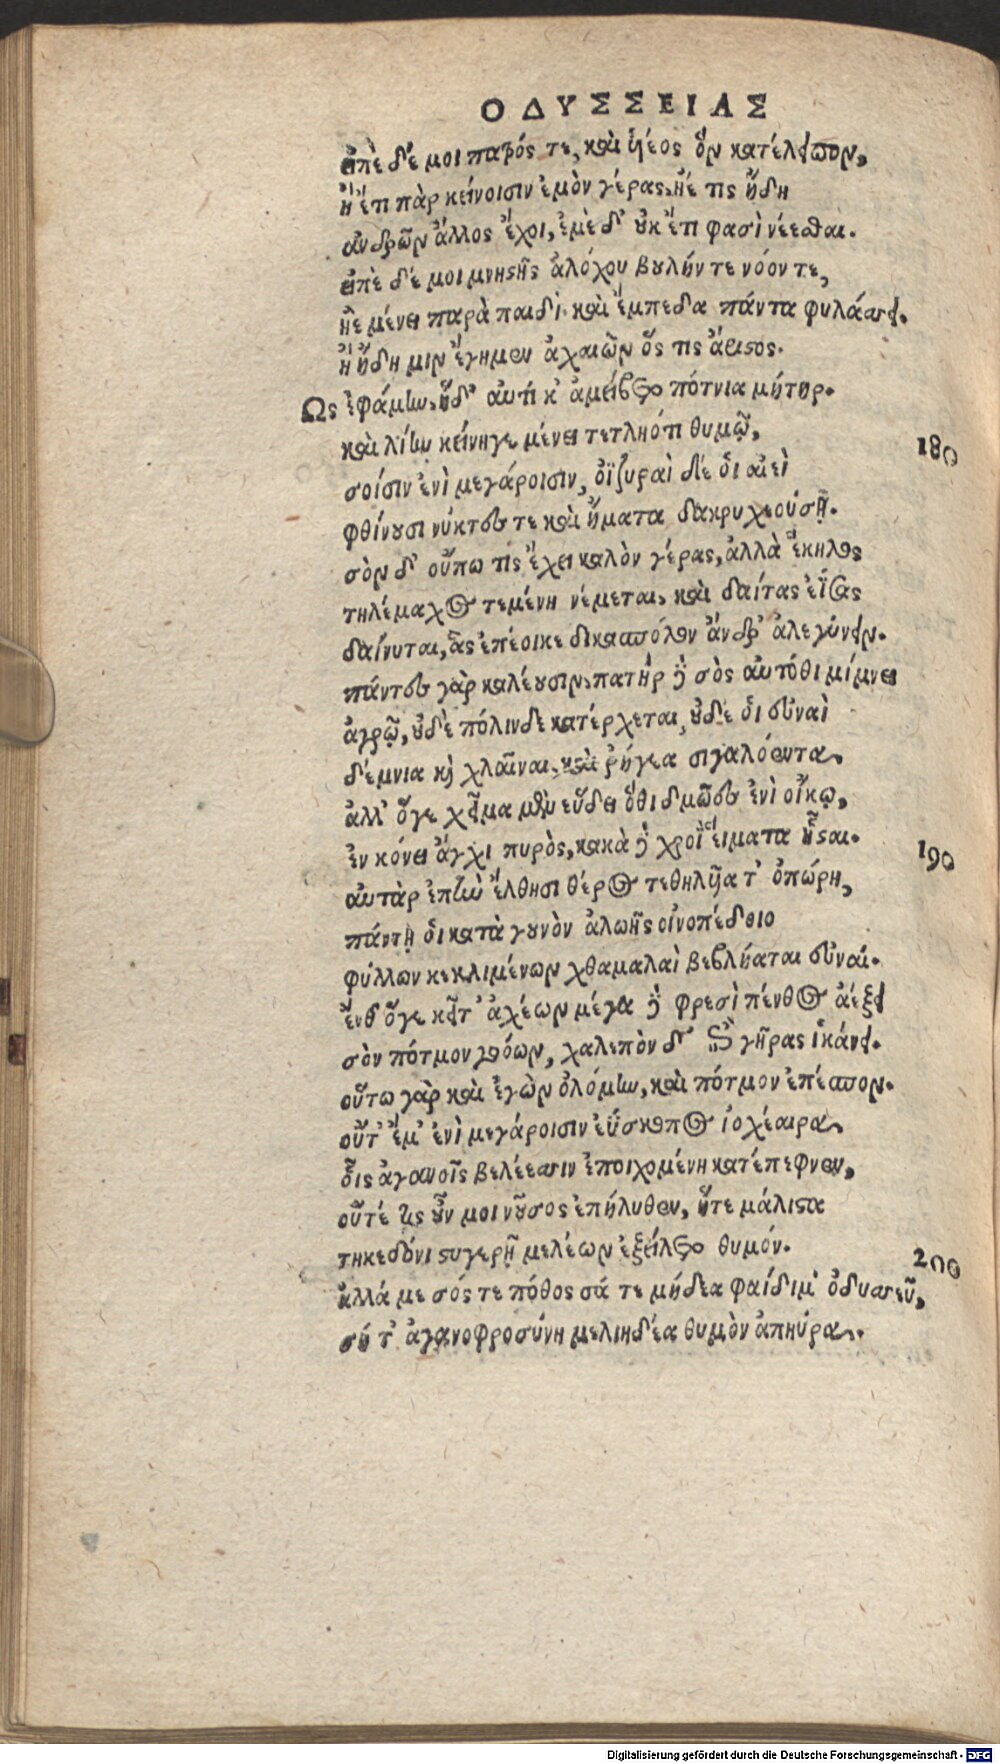 ΟΔΥΣΣΕΙΑΣ
εἰπὲ δέ μοι πατρός τε, καὶ υἱέος ὃν κατέλειπον,
ἢ ἔτι πὰρ κείνοισιν ἐμὸν γέρας, ἠέ τις ἤδη
ἀνδρῶν ἄλλος ἔχοι, ἐμὲ δ' οὐκ ἔτι φασὶ νέεσθαι.
εἰπὲ δέ μοι μνηστῆς ἀλόχου βουλήν τε νόον τε,
ἠὲ μένει παρὰ παιδὶ· καὶ ἔμπεδα πάντα φυλάσσει.
ἢ ἤδη μιν ἔγημεν ἀχαιῶν ὅς τις ἄριστος.
Ως ἐφάμην, ἡ δ' αὐτίκ' ἀμείβετο πότνια μήτηρ.
καὶ λίην κείνηγε μένει τετληότι θυμῷ,
180
σοῖσιν ἐνὶ μεγάροισιν, ὀϊζυραὶ δέ οἱ αἰεὶ
φθίνουσι νύκτες τε καὶ ἤματα δακρυχεούσῃ.
σὸν δ' οὔπω τὶς ἔχει καλὸν γέρας, ἀλλὰ ἕκηλος
τηλέμαχος τεμένη νέμεται, καὶ δαίτας ἐΐσας
δαίνυται, ἃς ἐπέοικε δικασπόλον ἄνδρ' ἀλεγύνειν.
πάντες γὰρ καλέουσιν, πατὴρ δὲ σὸς αὐτόθι μίμνει
ἀγρῷ, οὐδὲ πόλινδε κατέρχεται, οὐδέ οἱ εὐναὶ
δέμνια καὶ χλαῖναι, καὶ ῥήγεα σιγαλόεντα,
ἀλλ' ὅγε χεῖμα μὲν εὕδει ὅθι δμῶες ἐνὶ οἴκῳ,
ἐν κόνει ἄγχι πυρὸς, κακὰ δὲ χροῒ εἵματα ἧσται.
190
αὐτὰρ ἐπὴν ἔλθησι θέρος τεθηλυῖα τ' ὀπώρη,
πάντῃ οἱ κατὰ γουνὸν ἀλωῆς οἰνοπέδοιο
φύλλων κεκλιμένων χθαμαλαὶ βεβλήαται εὐναί.
ἔνθ' ὅγε κεῖτ' ἀχέων μέγα δὲ φρεσὶ πένθος ἀέξει
σὸν πότμον γοόων, χαλεπὸν δ' ἐπὶ γῆρας ἱκάνει.
οὕτω γὰρ καὶ ἐγὼν ὀλόμην, καὶ πότμον ἐπέσπον.
οὔτ' ἔμ' ἐνὶ μεγάροισιν ἐΰσκοπος ἰοχέαιρα,
οἷς ἀγανοῖς βελέεσσιν ἐποιχομένη κατέπεφνεν,
οὔτέ τις οὖν μοι νοῦσος ἐπήλυθεν, ἥτε μάλιστα
τηκεδόνι στυγερῇ μελέων ἐξείλετο θυμόν.
200
ἀλλά με σός τε πόθος σά τε μήδεα φαίδιμ' ὀδυσσεῦ,
σή τ' ἀγανοφροσύνη μελιηδέα θυμὸν ἀπηύρα.
Digitalisierung gefördert durch die Deutsche Forschungsgemeinschaft - DFG